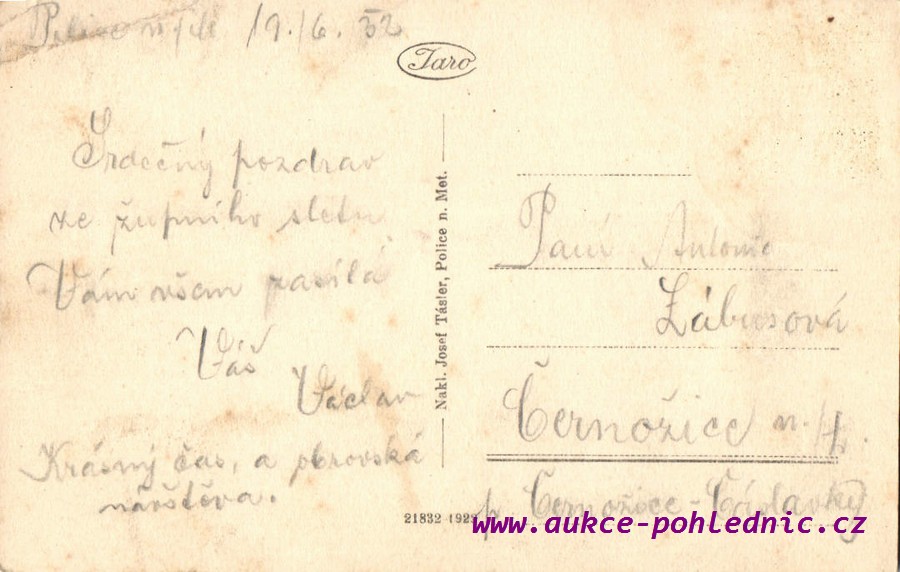 19./6. 32
Jaro
Srdečný pozdrav
ze župního sletu
Vám všem zasílá
Váš
Václav
Krásný čas, a obrovská
návštěva.
Nakl. Josef Táster, Police n. Met.
21832 1929
Paní Antonie
Zábusová
Černožice n./L.
p. Černožice-Čáslavky
www.aukce-pohlednic.cz